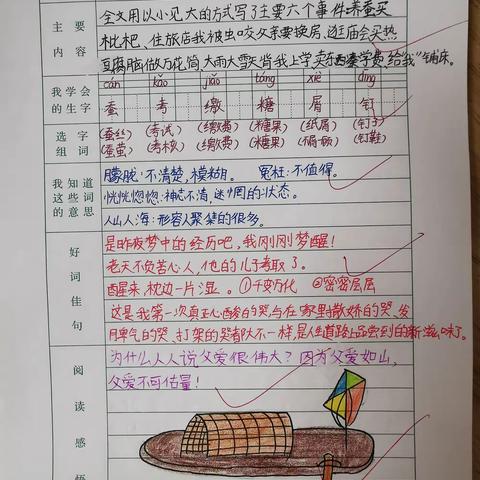 主要内容
全文用以小见大的方式写了主要六个事件:养蚕买
枇杷、住旅店我被虫咬父亲要换房、逛庙会买热
豆腐脑做万花筒、大雨大雪天背我上学、卖东西凑学费、给我“铺床。
我学会的生字
cán kǎo jiǎo táng xiè dīng
蚕 考 缴 糖 屑 钉
选字组词
(蚕丝) (考试) (缴费) (糖果) (纸屑) (钉子)
(蚕茧) (考核) (缴费) (糖果) (钉鞋)
我知道这些词的意思
朦胧:不清楚,模糊。 冤枉:不值得。
恍恍惚惚:神志不清,迷惘的状态。
人山人海:形容人聚集的很多。
好词佳句
是昨夜梦中的经历吧,我刚刚梦醒!
老天不负苦心人,他的儿子考取了。
醒来,枕边一片湿。①千变万化 ②密密层层
这是我第一次真正心酸的哭,与在家里撒娇的哭、发
脾气的哭、打架的哭都大不一样,是人生道路上品尝到的新滋味了。
阅读感悟
为什么人人说父爱很伟大?因为父爱如山,
父爱不可估量!